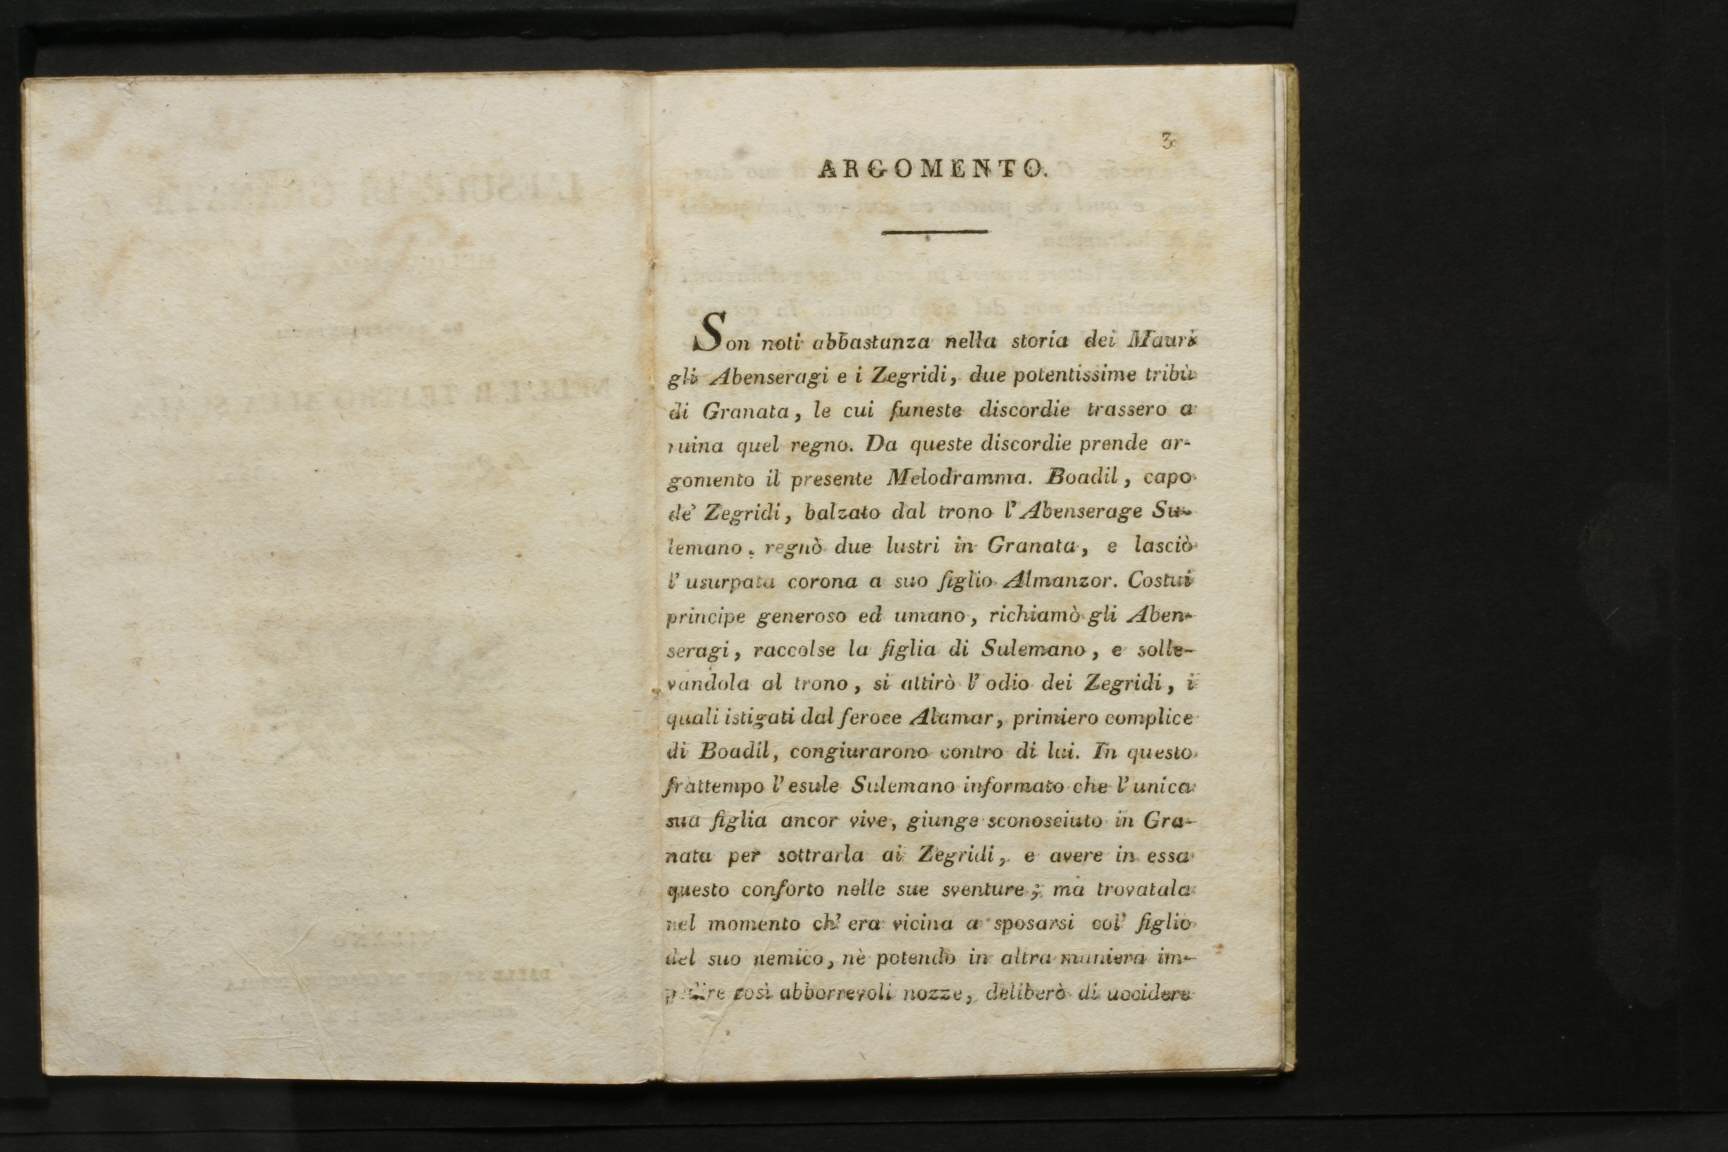 3
ARGOMENTO.
Son noti abbastanza nella storia dei Mauri
gli Abenseragi e i Zegridi, due potentissime tribù
di Granata, le cui funeste discordie trassero a
ruina quel regno. Da queste discordie prende ar-
gomento il presente Melodramma. Boadil, capo
de' Zegridi, balzato dal trono l'Abenserage Su-
lemano, regnò due lustri in Granata, e lasciò
l'usurpata corona a suo figlio Almanzor. Costui
principe generoso ed umano, richiamò gli Aben-
seragi, raccolse la figlia di Sulemano, e solle-
vandola al trono, si attirò l'odio dei Zegridi, i
quali istigati dal feroce Alamar, primiero complice
di Boadil, congiurarono contro di lui. In questo
frattempo l'esule Sulemano informato che l'unica
sua figlia ancor vive, giunge sconosciuto in Gra-
nata per sottrarla ai Zegridi, e avere in essa
questo conforto nelle sue sventure; ma trovatala
nel momento ch'era vicina a sposarsi col' figlio
del suo nemico, nè potendo in altra maniera im-
pedire così abborrevoli nozze, deliberò di uccidere